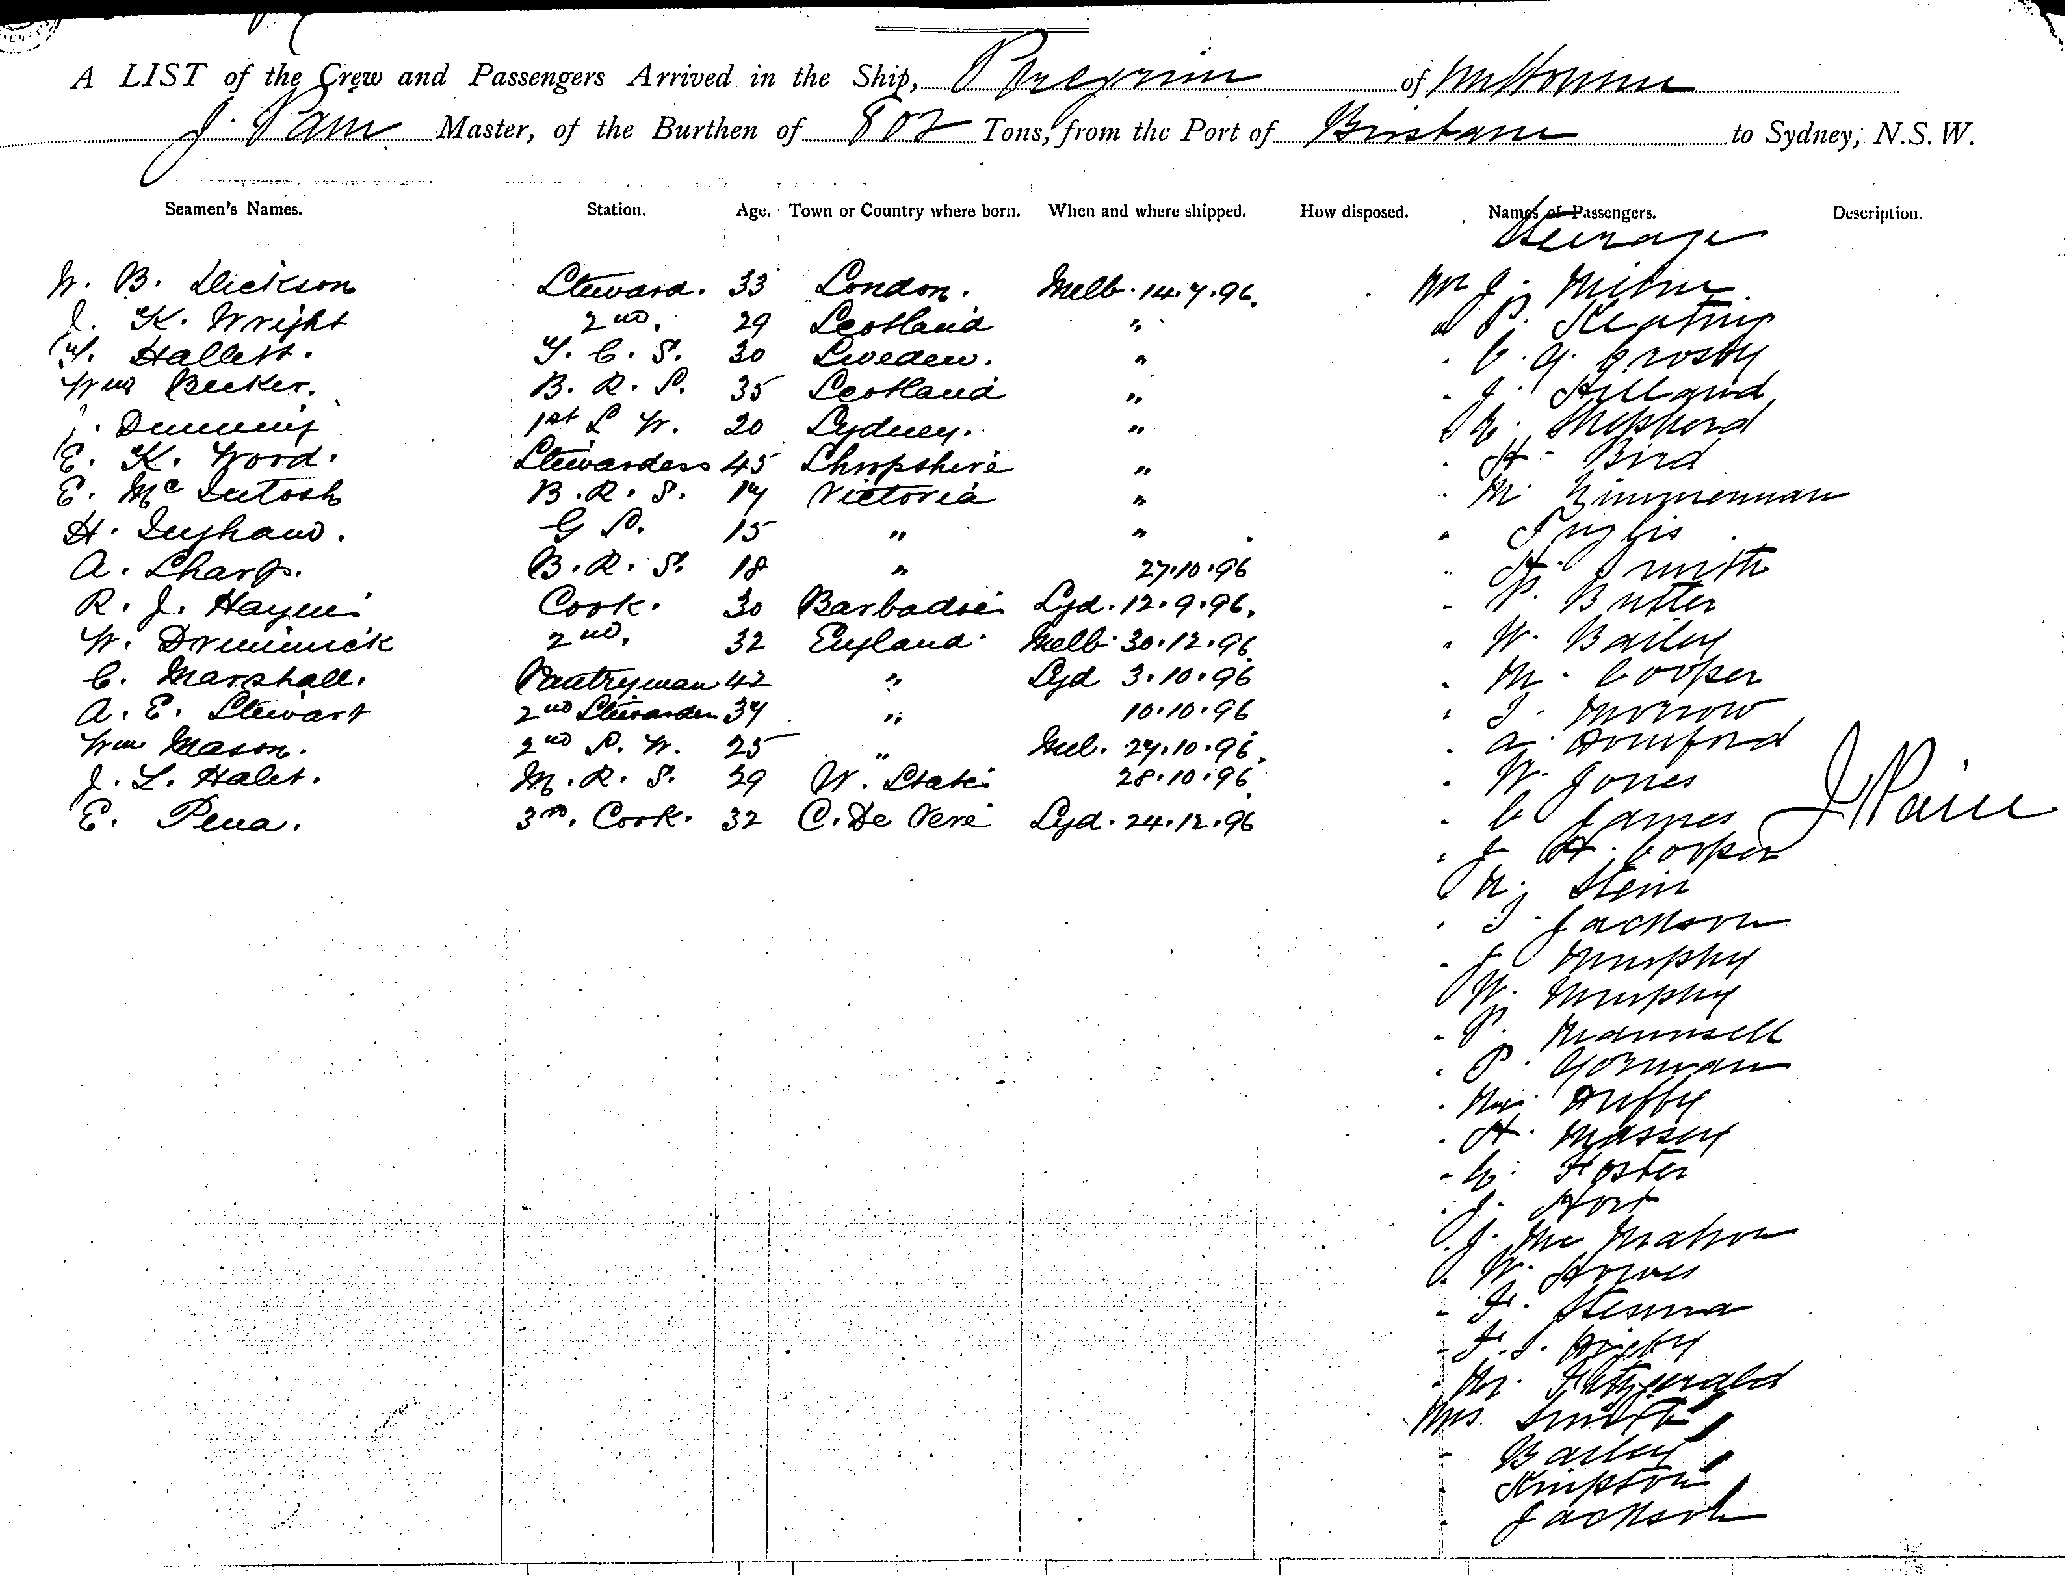 A LIST of the Crew and Passengers Arrived in the Ship, Peregrine of Melbourne
J. Pain Master, of the Burthen of 802 Tons, from the Port of Brisbane to Sydney, N.S.W.
Seamen's Names. Station. Age. Town or Country where born. When and where shipped. How disposed. Names of Passengers. Description.
Steerage
W. B. Dickson Steward. 33 London. Melb. 14.7.96. Mr J. Milne
J. K. Wright 2nd. 29 Scotland " " P. Keating
Hallett. F. C. S. 30 Sweden. " " C. G. Crosby
Wm Becker. B. R. S. 35 Scotland " " J. Hilland
1st S W. 20 Sydney. " " Shepherd
E. K. Wood. Stewardess 45 Shropshire " " H. Bird
E. Mc Intosh B. R. S. 17 Victoria " " M. Zimmerman
H. G S. 15 " " " Inglis
A. Sharp. B. R. S. 18 " 27.10.96 " H. Smith
R. J. Cook. 30 Barbadoes Syd. 12.9.96. " P. Butler
W. Domminick 2nd. 32 England Melb 30.12.96 " W. Bailey
C. Marshall. Pantryman 42 " Syd 3.10.96 " M. Cooper
A. E. Stewart 2nd Stewardess 37 " 10.10.96 " T. Morrow
Wm Mason. 2nd S. W. 25 " Mel. 27.10.96 " A.
J. L. M. R. S. 29 W. States 28.10.96 " W. Jones
E. Pena. 3rd. Cook. 32 C. De Verde Syd. 24.12.96 " C James J Pain
" J H. Cooper
" Stein
" T. Jackson
" J Murphy
" W. Murphy
" P. Maunsell
" P. Gorman
"
" H. Massey
" Foster
" J. Hort
" J. Mc Mahon
" W. Howes
" F.
" F. J. Rigby
" Fitzgerald
Mrs Smith
" Bailey
" Kimpton
" Jackson